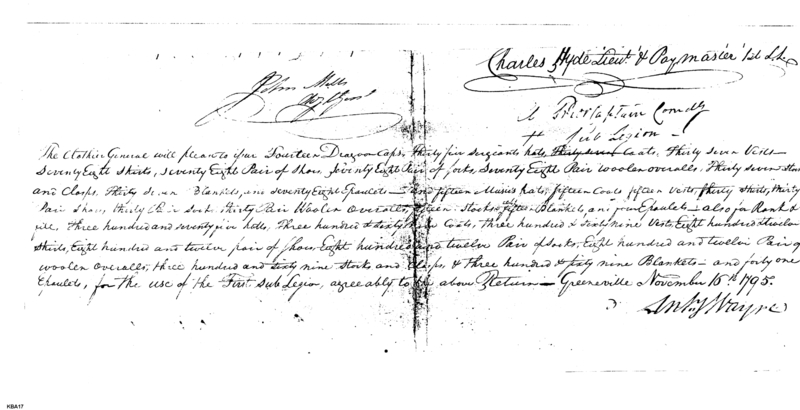 Charles Hyde Lieut & Paymaster 1st S.L.
John Mills
Adjt Genl
Captain Comdg
Sub Legion
The Clothier General will please to issue Fourteen Dragoon Caps, Thirty five sergeants hats, Thirty seven Coats, Thirty seven Vests
Seventy Eight Shirts, seventy Eight Pair of Shoes, Seventy Eight Pair of socks, Seventy Eight Pair woolen overalls, Thirty seven Stocks
and Clasps, Thirty Seven Blankets, and seventy Eight Epaulets — and fifteen Musics hats, fifteen Coats fifteen vests, Thirty shirts, thirty
Pair Shoes, thirty Pair Socks Thirty Pair Woolen Overalls, fifteen Stocks fifteen Blankets, and four Epaulets — also for Rank &
file, Three hundred and seventy five hatts, Three hundred & sixty nine Coats, three hundred & sixty nine Vests, Eight hundred & twelve
Shirts, Eight hundred and twelve pair of shoes, Eight hundred and twelve Pair of Socks, Eight hundred and twelve Pair of
woolen Overalls, three hundred and sixty nine Stocks and Clasps, & Three hundred & sixty nine Blankets — and forty one
Epaulets, for the use of the First Sub Legion, agreeably to the above Return — Greeneville November 16th 1795.
Anty Wayne
KBA17